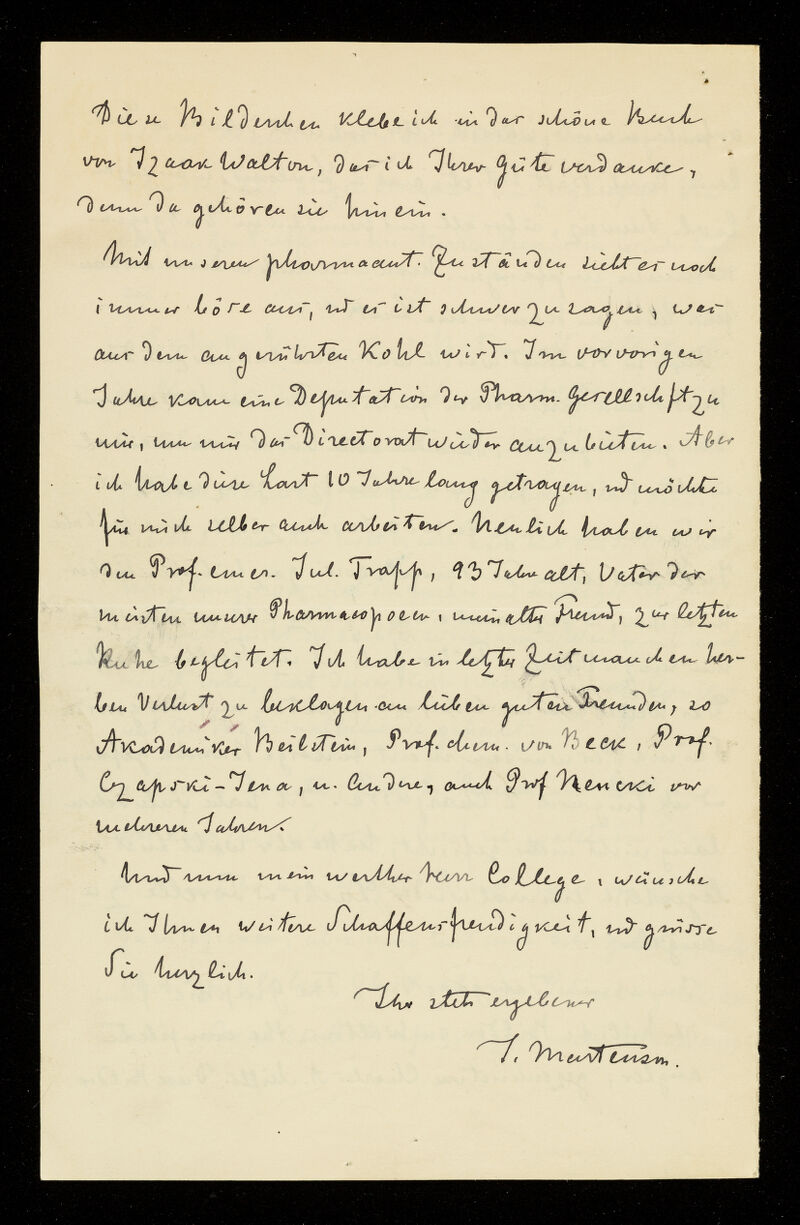 Diese Bilderchen klebe ich in das schöne Buch
von Izaak Walton, das ich Ihrer Güte verdanke,
denn da gehören sie hinein.
Mit unseren pharmaceut. Zuständen sieht es noch
immer böse aus, ud es ist schwer zu sagen, was
aus dem angerührten Kohl wird. Im vorvorigen
Jahre kam eine Deputation der Pharm. Gesellschft zu
mir, um mir das Directorat wieder anzubieten. Aber
ich habe diese Last 10 Jahre lang getragen, ud möchte
für mich selber auch arbeiten. Neulich haben wir
den Prof. emer. Jul. Trapp, 93 Jahre alt, Vater der
meisten unserer Pharmacopoeen, mein alter Freund, zur letzten
Ruhe begleitet. Ich habe in letzter Zeit manchen her-
ben Verlust zu beklagen an lieben guten Freunden, so
Akademiker Beilstein, Prof. chem. von Beck, Prof.
Czapski-Jena, u. Andere, auch Prof Nencki vor
mehreren Jahren.
Und nun mein werther Herr College, wünsche
ich Ihnen weitere Schaffensfreudigkeit, ud grüsse
Sie herzlich.
Ihr stets ergebener
J. Martenson.